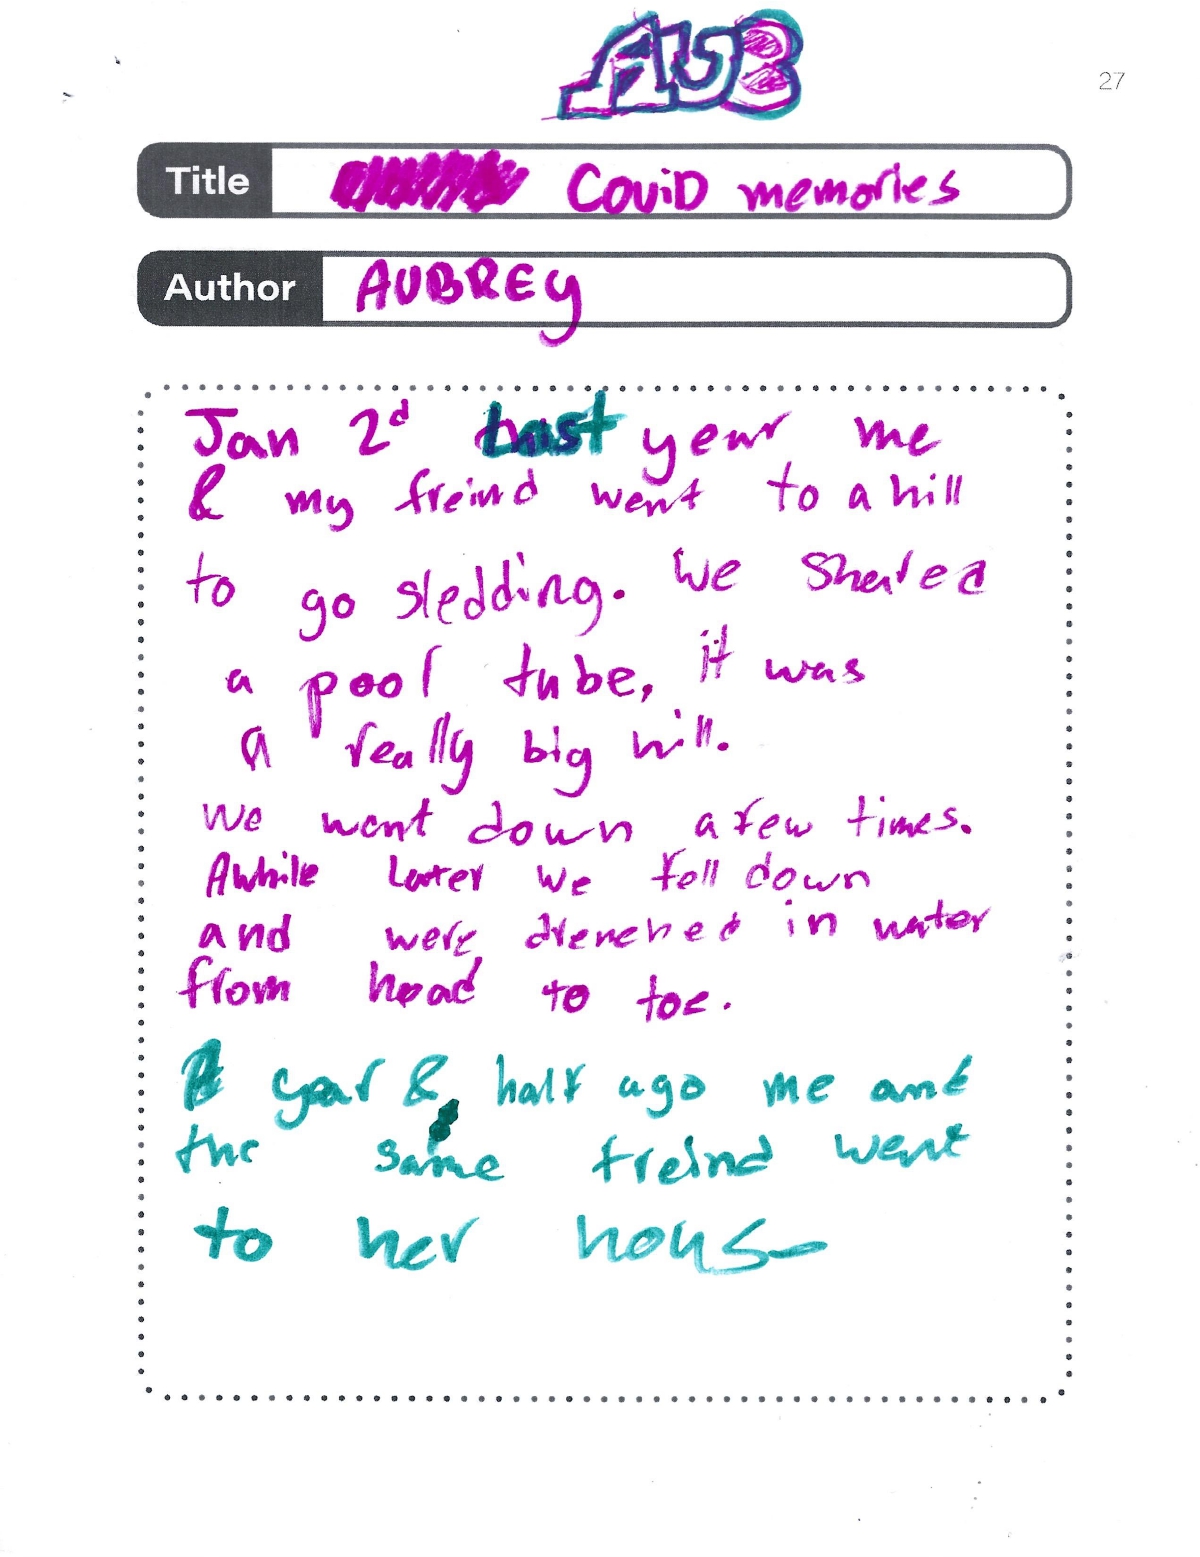 AUB
27
Title CoviD memories
Author AUBREy
Jan 2d Last year me
& my freind went to a hill
to go sledding. We shared
a pool tube, it was
a really big hill.
We went down a few times.
Awhile Later we fell down
and were drenched in water
from head to toe.
A year & half ago me and
the same freind went
to her house